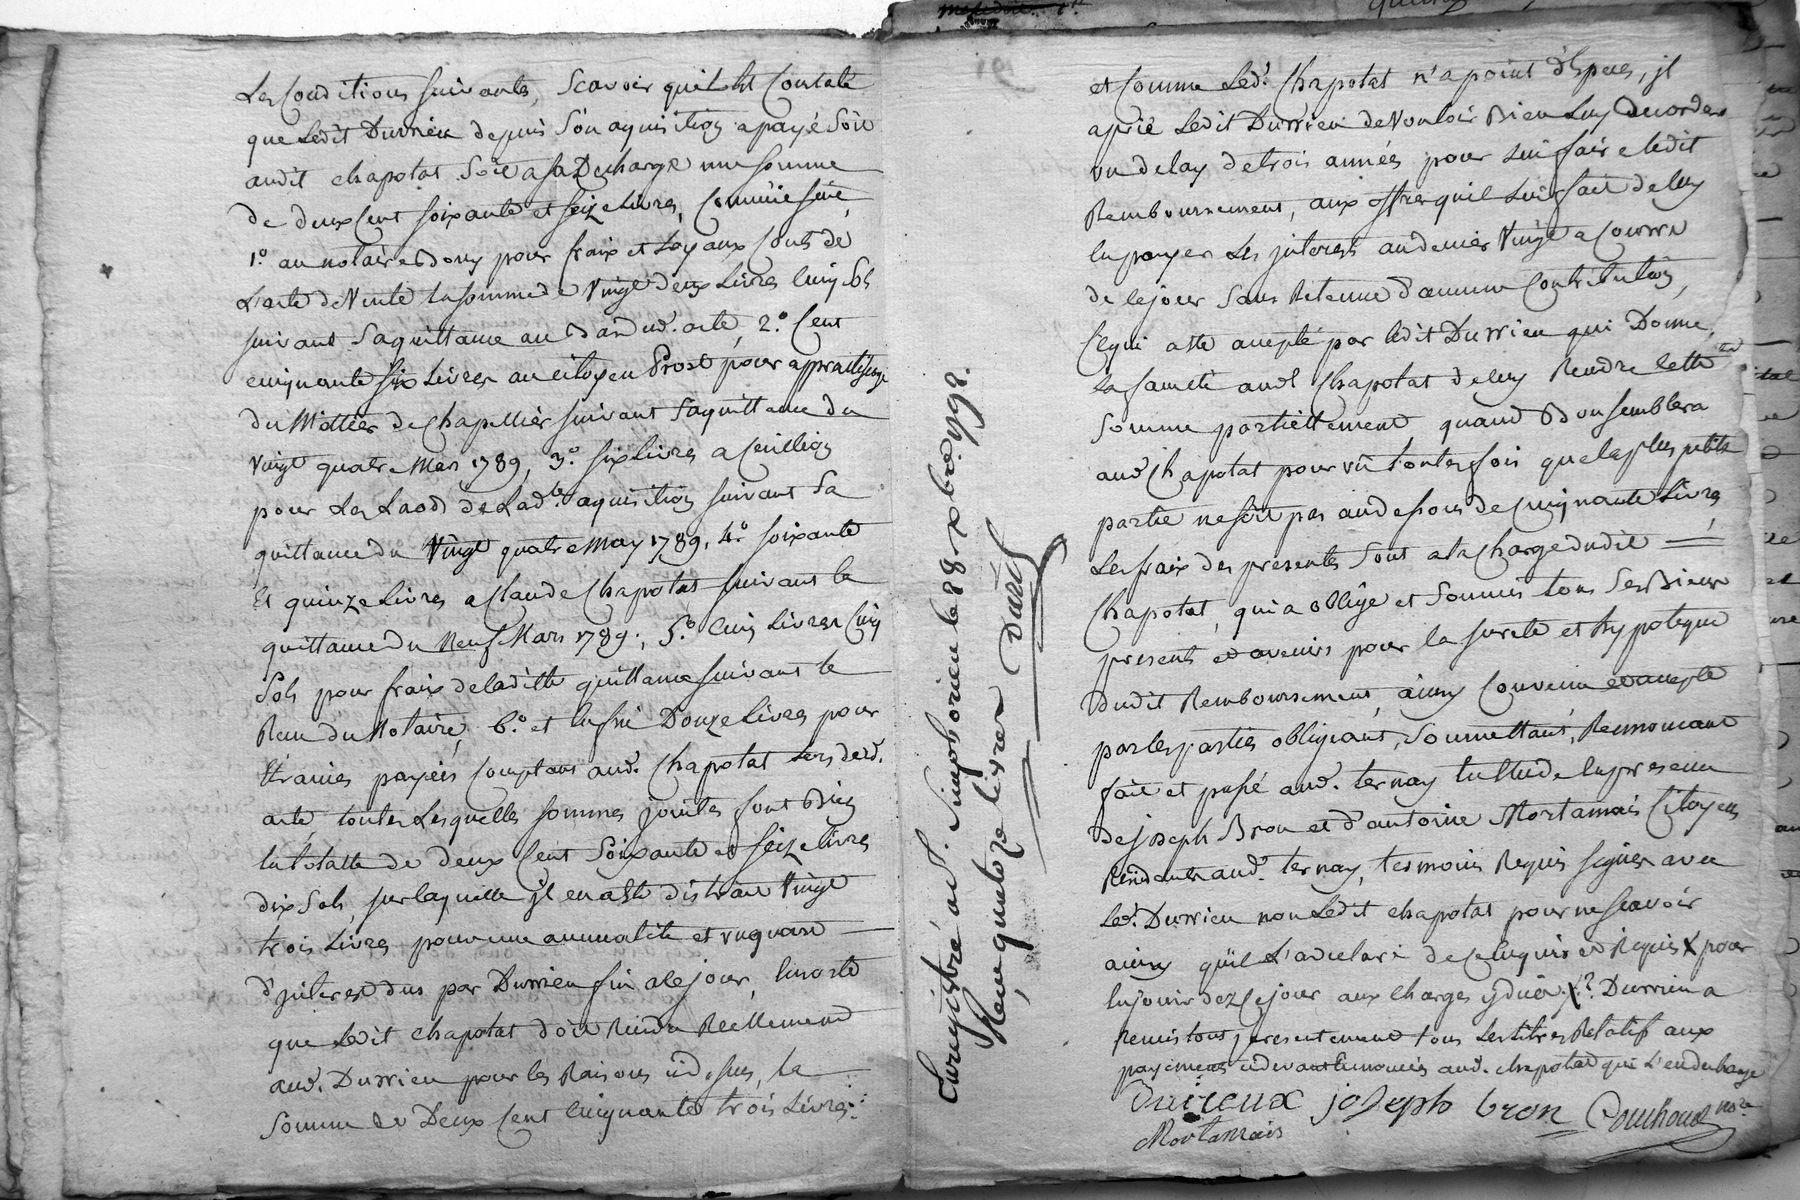 Les Conditions suivantes, Scavoir quil Est Constate
que Ledit Durrieu depuis Son aquisition a payé Soit
audit chapotat Soit a sa Decharge une somme
de deux Cent soixante et seize Livres, Comme suit,
1.º au notaire Bony pour fraix et Loyaux Couts de
L'acte de Vente la somme de Vingt deux Livres Cinq Sols
suivant Sa quittance au Bas dud. acte, 2.º Cent
cinquante six Livres au citoyen Prost pour apprantisage
du Mettier de Chapellier suivant Sa quittance du
Vingt quatre Mars 1789, 3.º six Livres a
pour Les Laods de Lad.te aquisition suivant Sa
quittance du Vingt quatre May 1789, 4.º soixante
Et quinze Livres a Claude Chapotat suivant la
quittance du Neuf Mars 1789; 5.º Cinq Livres Cinq
Sols pour fraix de ladite quittance suivant le
Recu du Notaire, 6.º et enfin Douze Livres pour
Etraines payées Comptant aud. Chapotat Lors dud.
acte, toutes Lesquelles sommes jointes font Bien
la totalle de deux Cent Soixante et seize Livres
dix Sols, sur laquelle jl en a Eté distrait Vingt
trois Livres pour une annualité et un quart
d'jnterest dus par Durrieu fin a ce jour, Ensorte
que Ledit chapotat doit Rendre Reellement
aud. Durrieu pour les Raisons cid. sus, La
Somme de Deux Cent Cinquante trois Livres.
Enregistré a S. Simphorien le 28 xbre 1792.
Reçu quatorze livres
et Comme Led.t Chapotat n'a point d'Especes, jl
a prié Ledit Durrieu de Vouloir Bien Luy accorder
un delay de trois années pour lui faire ledit
Remboursement, aux offres quil lui fait de luy
en payer Les jnterests au denier Vingt a Courir
de ce jour Sans Retenue d'aucune Contribution,
Ce qui a Eté accepté par ledit Durrieu qui Donne
la faculté aud.t Chapotat de luy Rendre cette
Somme partiellement quand Bon semblera
aud. Chapotat pourvû toutes fois que la plus petite
partie ne soit pas au dessous de Cinquante Livres,
Les fraix des presentes sont a la Charge dudit
Chapotat, qui a obligé et Soumis tous Ses Biens
presents et avenirs pour la sureté et hypoteque
dudit Remboursement, ainsy Convenu et accepté
par les parties obligeant, Soumettant, Rennonçant
fait et passé aud. ternay Etude en presence
de joseph Bron et d'antoine Mortamais Citoyens
Residants aud. ternay, temoins Requis signés avec
Led. Durrieu non Ledit chapotat pour ne scavoir
ainsy quil L'a declaré de ce enquis et Requis X pour
en jouir dez Ce jour aux charges y dues. X ? Durrieu a
Remis tout presentement tous Les titres Relatif aux
payements cidevant Ennoncés aud. chapotat qui L'en decharge
Durieux joseph bron no.re
Mortamais